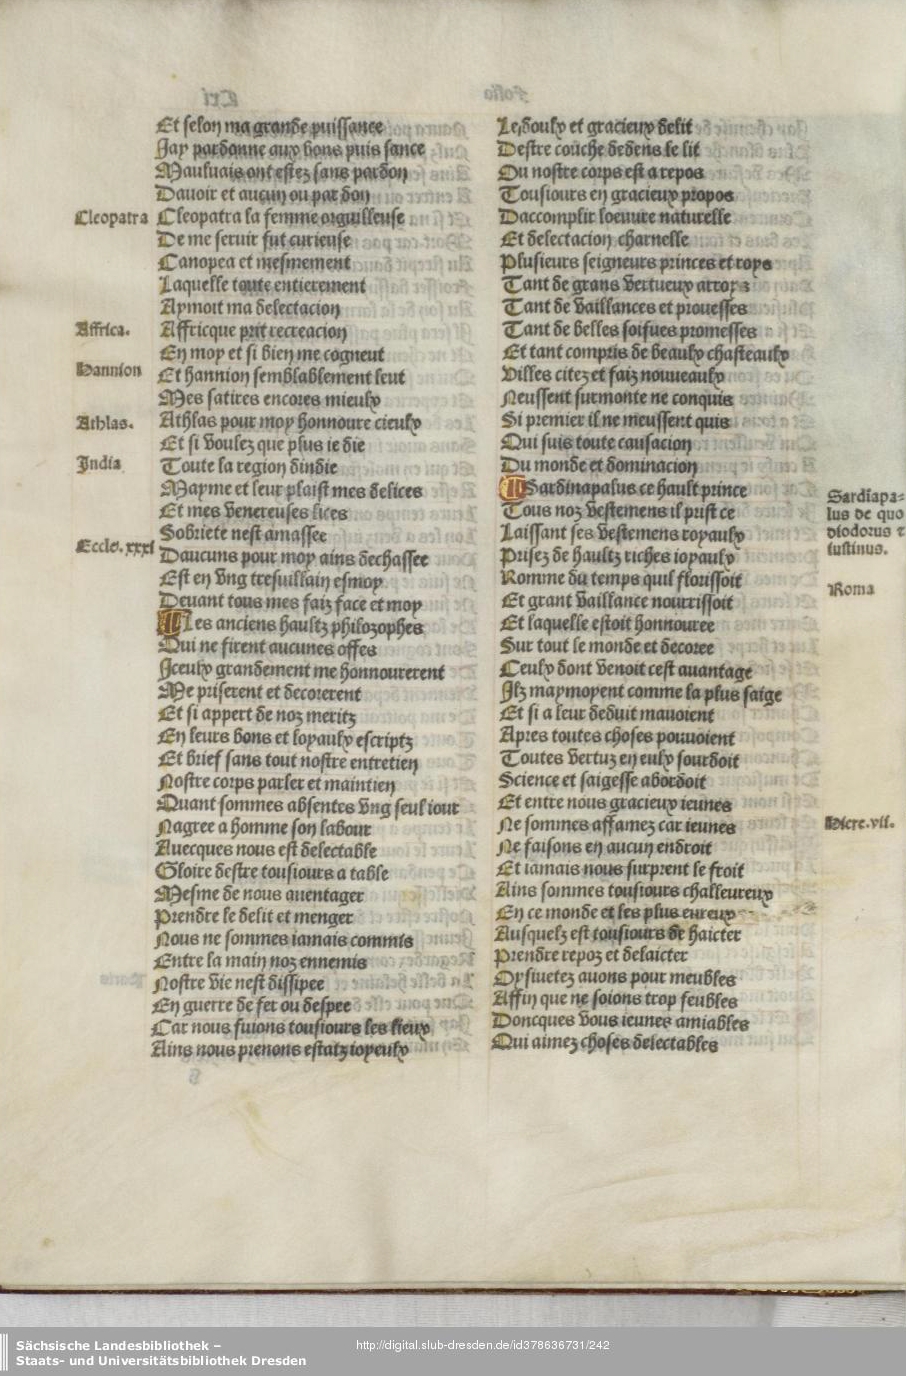 Et selon ma grande puissance
Jay pardonne aux bons puis sance
Mauluais ont estez sans pardon
Dauoir et aucun ou par don
Cleopatra
Cleopatra la femme orguilleuse
De me seruir fut curieuse
Canopea et mesmement
Laquelle toute entierement
Aymoit ma delectacion
Affrica.
Affricque prit recreacion
En moy et si bien me cogneut
Hannion
Et hannion semblablement leut
Mes satires encores mieulx
Athlas.
Athlas pour moy honnoure cieulx
Et si voulez que plus ie die
India
Toute la region dindie
Mayme et leur plaist mes delices
Et mes venereuses lices
Sobriete nest amassee
Eccle. xxxi
Daucuns pour moy ains dechassee
Est en vng tresuillain esmoy
Deuant tous mes faiz face et moy
Les anciens haultz philozophes
Qui ne firent aucunes offes
Iceulx grandement me honnourerent
Me priserent et decorerent
Et si appert de noz meritz
En leurs bons et loyaulx escriptz
Et brief sans tout nostre entretien
Nostre corps parler et maintien
Quant sommes absentes vng seul iour
Nagree a homme son labour
Auecques nous est delectable
Gloire destre tousiours a table
Mesme de nous auentager
Prendre le delit et menger
Nous ne sommes iamais commis
Entre la main noz ennemis
Nostre vie nest dissipee
En guerre de fer ou despee
Car nous fuions tousiours les lieux
Ains nous prenons estatz ioyeulx
Le doulx et gracieux delit
Destre couche dedens le lit
Ou nostre corps est a repos
Tousiours en gracieux propos
Daccomplir loeuure naturelle
Et delectacion charnelle
Plusieurs seigneurs princes et roys
Tant de grans vertueux arroys
Tant de vaillances et prouesses
Tant de belles soifues promesses
Et tant compris de beaulx chasteaulx
Villes citez et faiz nouueaulx
Neussent surmonte ne conquis
Si premier il ne meussent quis
Qui suis toute causacion
Du monde et dominacion
Sardinapalus ce hault prince
Sardiapa=
lus de quo
diodorus τ
iustinus.
Tous noz vestemens il prist ce
Laissant ses vestemens royaulx
Prisez de haultz riches ioyaulx
Romme du temps quil florissoit
Roma
Et grant vaillance nourrissoit
Et laquelle estoit honnouree
Sur tout le monde et decoree
Ceulx dont venoit cest auantage
Ilz maymoyent comme la plus saige
Et si a leur deduit mauoient
Apres toutes choses pouuoient
Toutes vertuz en eulx sourdoit
Science et saigesse abordoit
Et entre nous gracieux ieunes
Ne sommes affamez car ieunes
Hiere. vii.
Ne faisons en aucun endroit
Et iamais nous surprent le froit
Ains sommes tousiours challeureux
En ce monde et les plus eureux
Ausquelz est tousiours de haicter
Prendre repoz et delaicter
Oysiuetez auons pour meubles
Affin que ne soions trop feubles
Doncques vous ieunes amiables
Qui aimez choses delectables
Sächsische Landesbibliothek –
Staats- und Universitätsbibliothek Dresden
http://digital.slub-dresden.de/id378636731/242